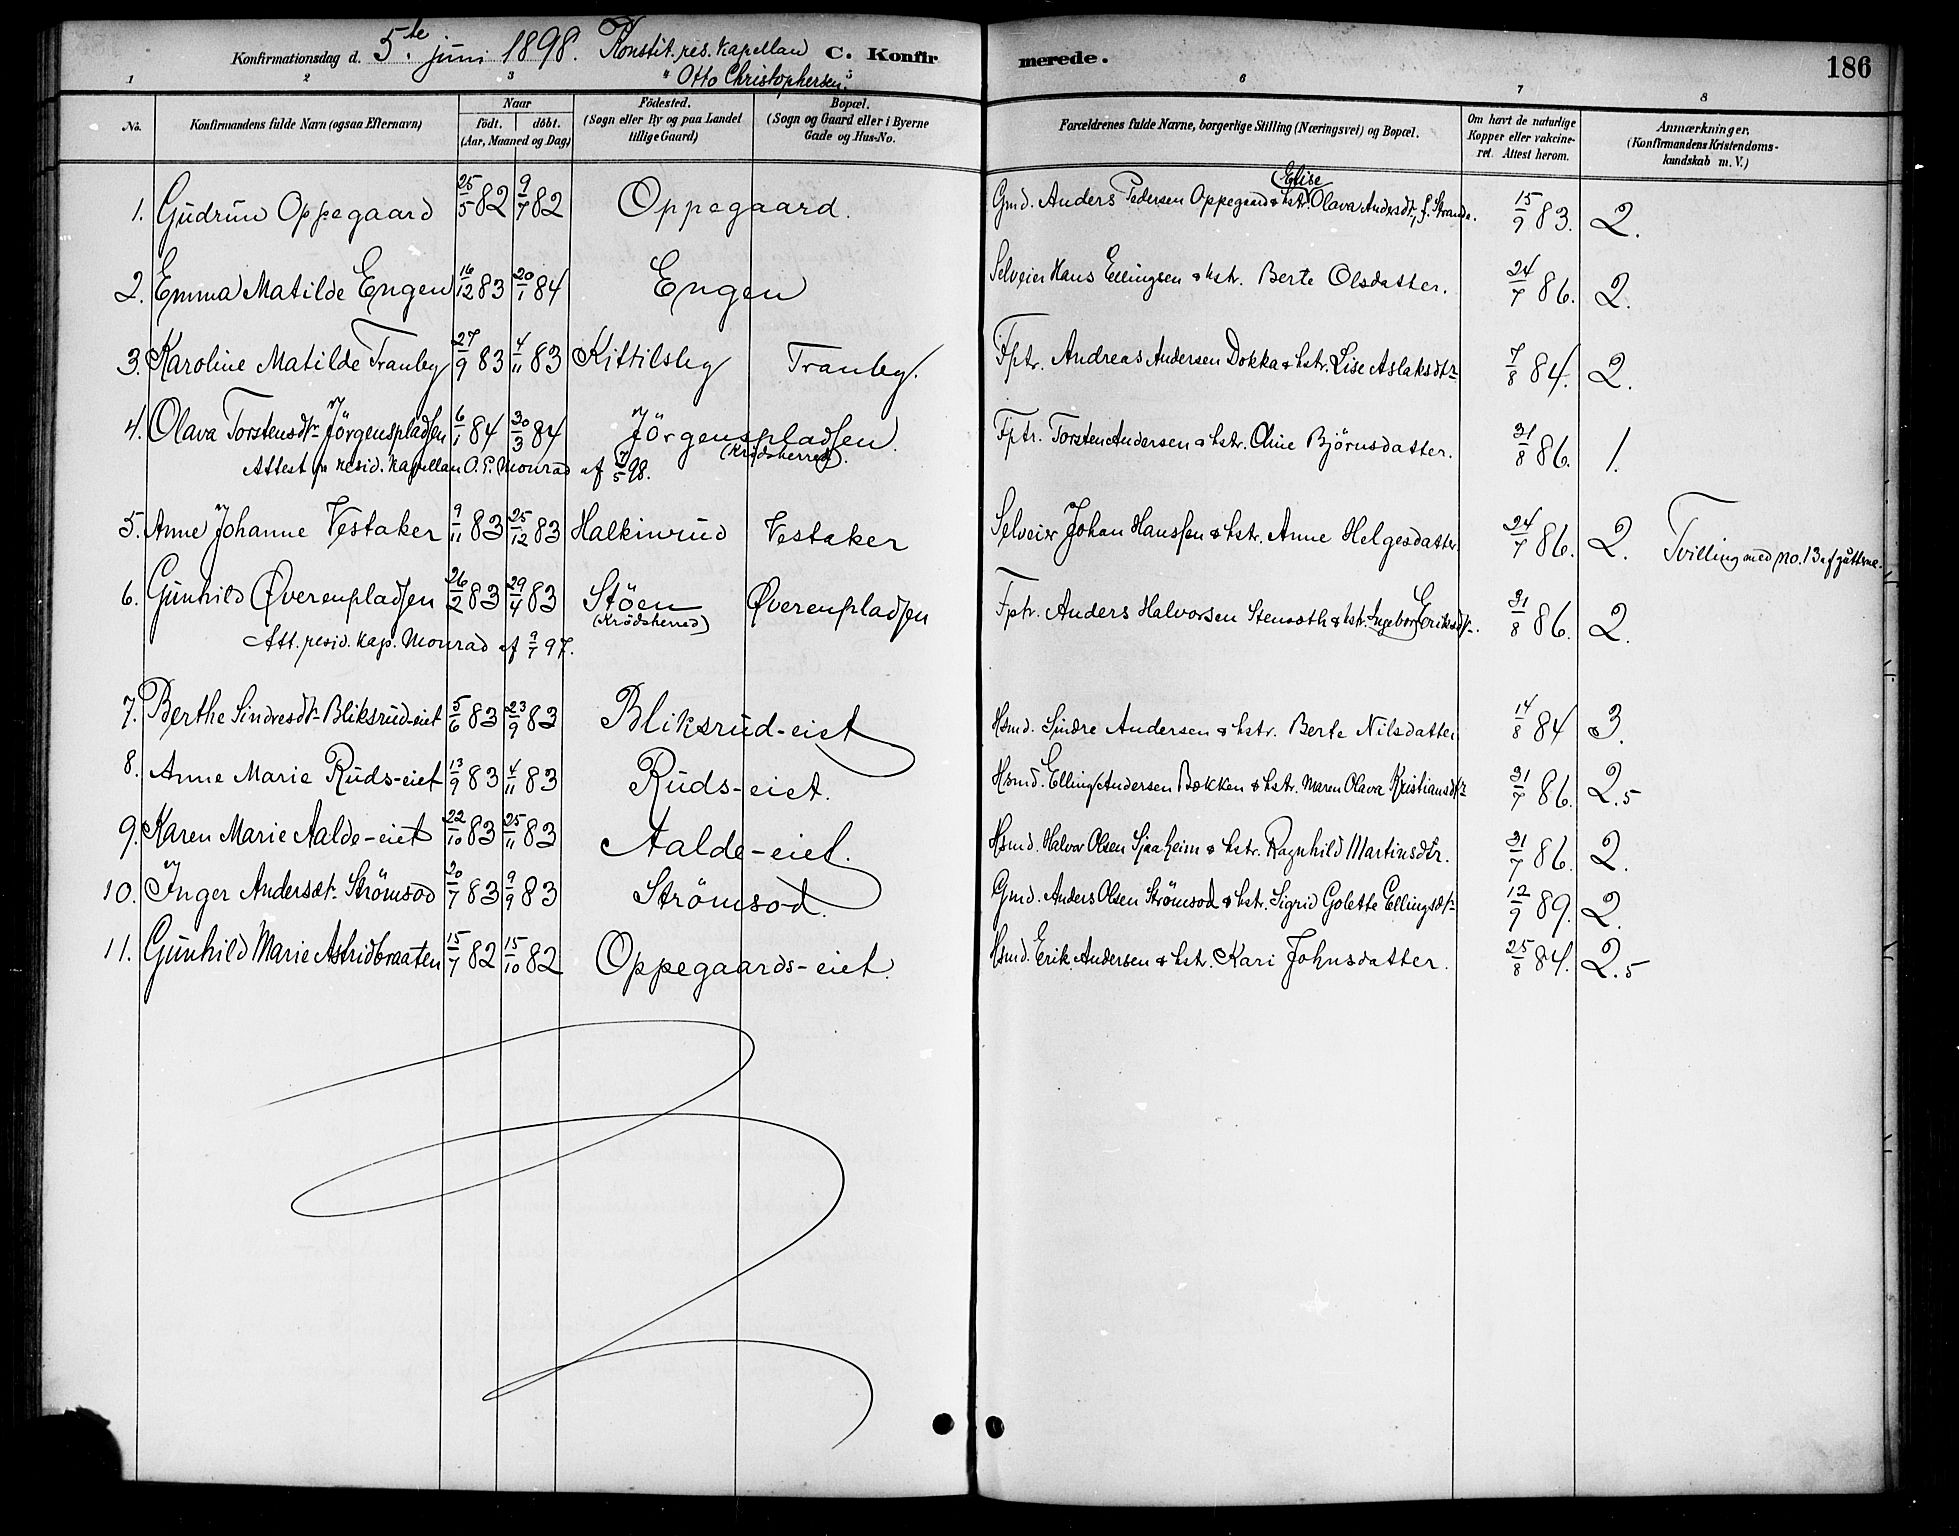 Konfirmationsdag d. 5.te juni 1898. Konstit. res. kapellan C. Konfirmerede. 186
"Otto Christophersen".
1 2 3 6 7 8
No. Konfirmandens fulde Navn (ogsaa Efternavn) Naar födt. döbt. (Aar, Maaned og Dag) Födested. (Sogn eller By og paa Landet tillige Gaard) Bopæl. (Sogn og Gaard eller i Byerne Gade og Hus-No. Forældrenes fulde Navne, borgerlige Stilling (Næringsvei) og Bopæl. Om havt de naturlige Kopper eller vakcineret. Attest herom. Anmærkninger. (Konfirmandens Kristendomskundskab m. V.)
1. Gudrun Oppegaard 25/5 82 9/7 82 Oppegaard. Gmd. Anders Pedersen Oppegaard & hstr. Elise Olava Andersdtr, f. Strande. 15/9 83. 2.
2. Emma Matilde Engen 16/12 83 20/1 84 Engen Selveier Hans Ellingsen & hstr. Berte Olsdatter. 24/7 86. 2.
3. Karoline Matilde Tranby 27/9 83 4/11 83 Kittilsby Tranby. Fptr. Andreas Andersen Dokka & hstr. Lise Aslaksdtr 7/8 84. 2.
4. Olava Torstensdtr Jörgenspladsen 6/1 84 30/3 84 Jörgenspladsen. (Krödsherred). Fptr. Torsten Andersen & hstr. Oline Björnsdatter. 31/8 86. 1.
Attest fr resid. kapellan O. P. Monrad af 7/5 98.
5. Anne Johanne Vestaker 9/11 83 25/12 83 Halkinrud Vestaker Selveier Johan Hanssen & hstr. Anne Helgesdatter 24/7 86. 2. Tvilling med no. 13 af gutterne.
6. Gunhild Øverenpladsen 26/2 83 29/4 83 Stöen (Krödsherred) Øverenpladsen Fptr. Anders Halvorsen Stensæth & hstr. Ingebor Eriksdtr. 31/8 86. 2.
Att. resid. kap. Monrad af 9/7 97.
7. Berthe Sindresdtr Bliksrud-eiet 5/6 83 23/9 83 Bliksrud-eiet Hsmd. Sindre Andersen & hstr. Berte Nilsdatter 14/8 84 3.
8. Anne Marie Ruds-eiet 13/9 83 4/11 83 Ruds-eiet. Hsmd. Elling Andersen Bækken & hstr. Maren Olava Kristiansdtr 31/7 86. 2.5
9. Karen Marie Aalde-eiet 22/10 83 25/11 83 Aalde-eiet. Hsmd. Halvor Olsen Sjaaheim & hstr. Ragnhild Martinsdtr. 31/7 86. 2.
10. Inger Andersdt. Strömsod 20/7 83 9/9 83 Strömsod. Gmd. Anders Olsen Strömsod & hstr. Sigrid Golette Ellingsdtr 12/9 89. 2.
11. Gunhild Marie Astridbraaten 15/7 82 15/10 82 Oppegaards-eiet. Hsmd. Erik Andersen & hstr. Kari Johnsdatter. 25/8 84. 2.5